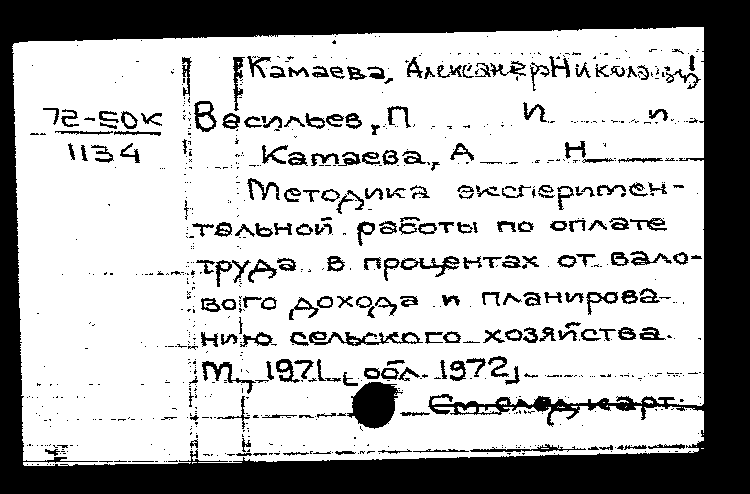 Камаева, Александр Николаевич
72-50к
1134
Васильев, П И и
Камаева, А Н
Методика эксперимен-
тальной работы по оплате
труда в процентах от вало-
вого дохода и планирова-
нию сельского хозяйства.
М., 1971 [обл. 1972]
См. след. карт.